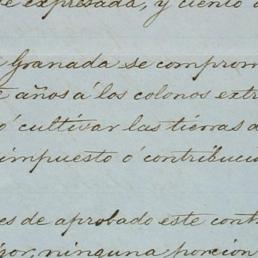 expresada, y ciento
Granada se comprom
años á los colonos extr
ó cultivar las tierras d
impuesto ó contribuci
es de aprobado este cont
ninguna porcion